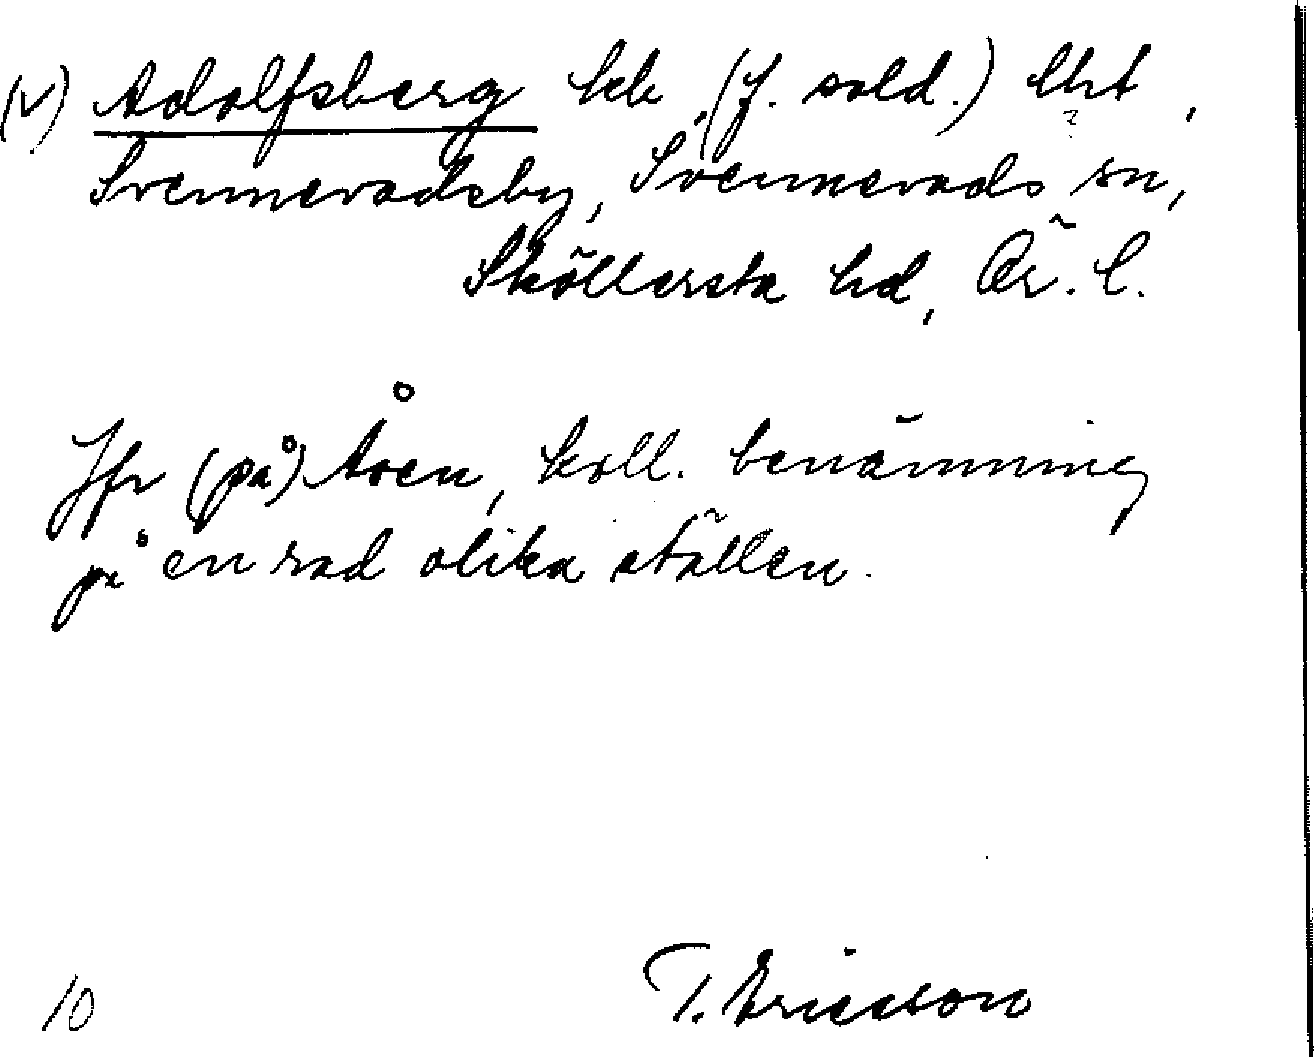 (v) Adolfsberg hlt, (f. sold.) lht,
?
Svennevadsby, Svennevads sn,
Sköllersta hd, Ör. l.
Jfr (på) Åsen, koll. benämning
på en rad olika ställen.
T. Ericsson
10